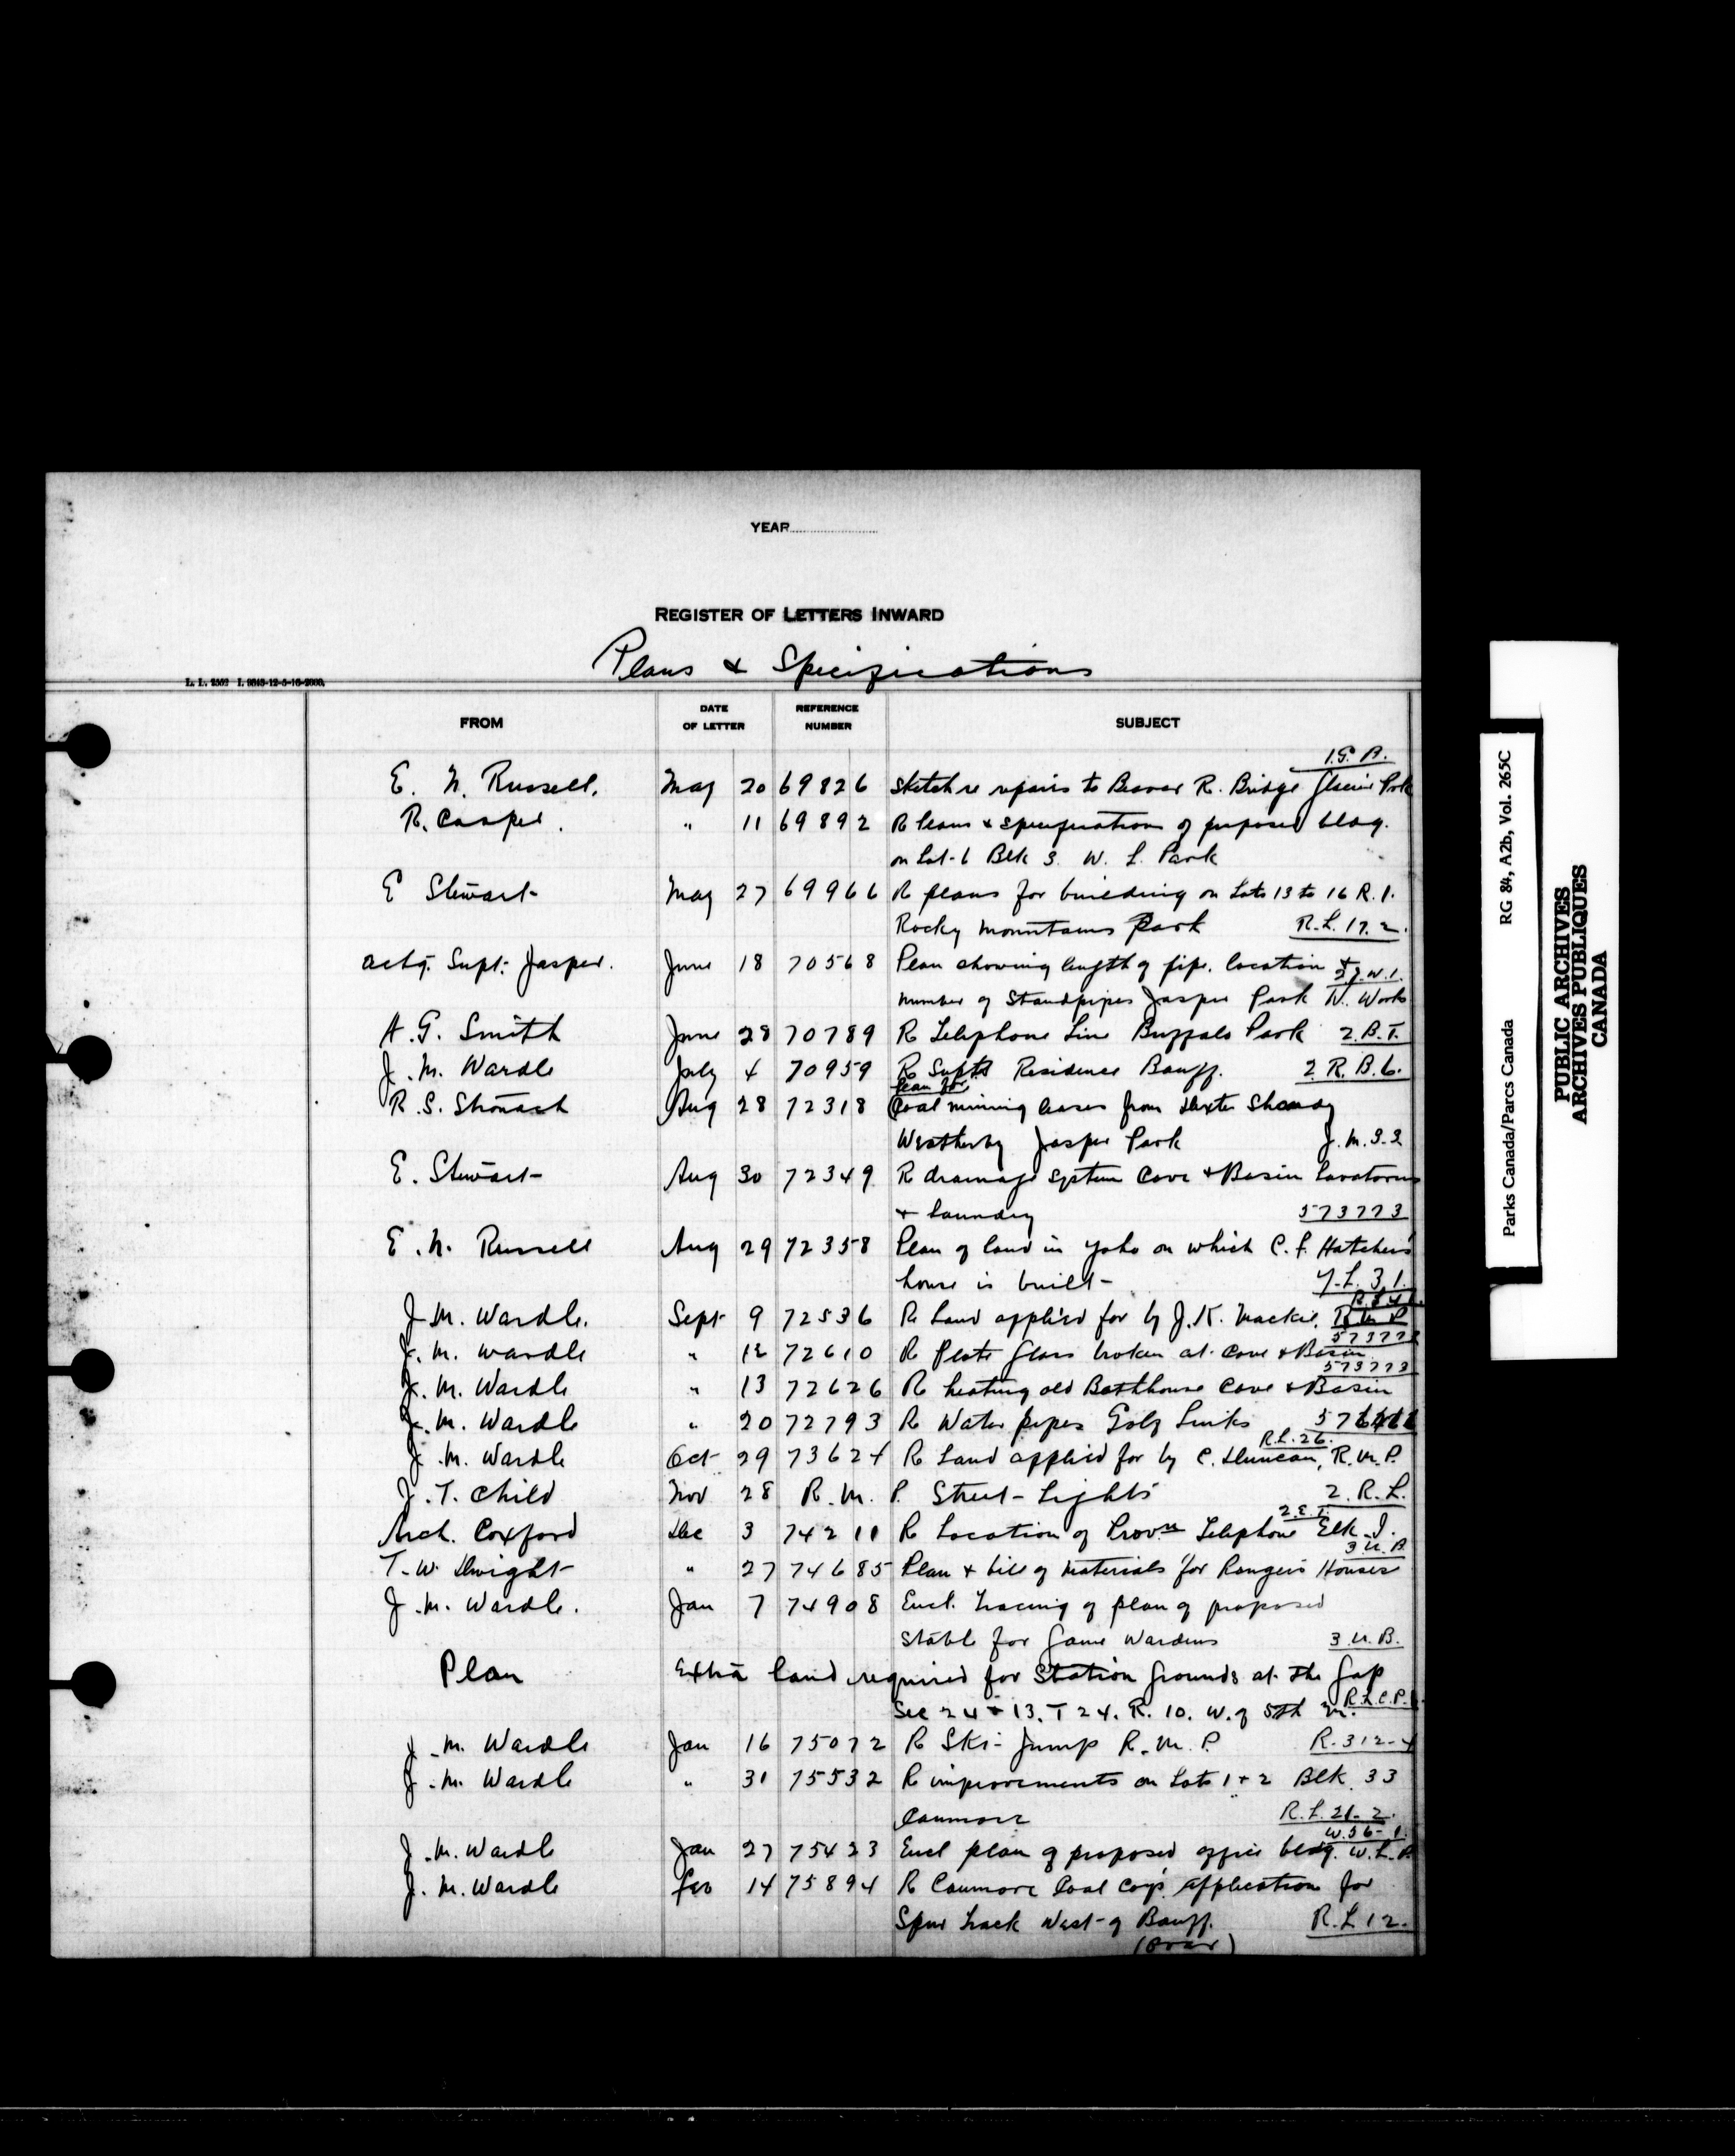 YEAR
REGISTER OF LETTERS INWARD
Plans & Specifications
L. L. 2552 I. 9843-12-5-16-2000.
FROM DATE OF LETTER REFERENCE NUMBER SUBJECT
1 G. B.
E. N. Russell. May 20 69826 Sketch re repairs to Beaver R. Bridge Glacier Park
R. Cooper. " 11 69892 R Plans & specifications of proposed bldg.
on Lot 6 Blk 3. W. L. Park
E Stewart May 27 69966 R plans for building on Lots 13 to 16 R. 1.
Rocky Mountains Park R.L. 17. 2.
Actg. Supt. Jasper. June 18 70568 Plan showing length of pipe. location &
number of Standpipes Jasper Park W. Works
A. G. Smith June 28 70789 R Telephone Line Buffalo Park 2. B.T.
J. M. Wardle July 4 70959 R Supts Residence Banff. 2 R. B. 6.
Plan for
R. S. Stronach Aug 28 72318 Coal mining leases from Dexter
Weatherby Jasper Park J. M. 3-2
E. Stewart Aug 30 72349 R drainage system Cave & Basin Lavatories
& laundry 573773
E. N. Russell Aug 29 72358 Plan of land in Yoho on which C. F. Hatcher's
house is built Y. L. 31.
J. M. Wardle. Sept 9 72536 R Land applied for by J. K. Mackie. R M P
573773
J. M. Wardle " 12 72610 R Plate Glass broken at Cave & Basin
573773
J. M. Wardle " 13 72626 R heating old Bathhouse Cave & Basin
J. M. Wardle " 20 72793 R Water pipes Golf Links
R.L. 26.
J. M. Wardle Oct 29 73624 R Land applied for by C. Duncan, R. M. P.
J. T. Child Nov 28 R. M. P. Street Lights 2. R. L.
2. E. T.
Arch. Coxford Dec 3 74211 R Location of Telephone Elk I.
3 U. B.
T. W. Dwight " 27 74685 Plan & bill of Materials for Rangers Houses
J. M. Wardle. Jan 7 74908 Encl. Tracing of plan of proposed
Stable for Game Wardens 3 U. B.
Plan Extra land required for Station Grounds at the Gap
Sec 24 & 13. T 24. R. 10. W. of 5th M. R.L.C.P.
J. M. Wardle Jan 16 75072 R Ski-Jump R. M. P. R. 312-
J. M. Wardle " 31 75532 R improvements on Lots 1 & 2 Blk. 33
Canmore R. L. 21-2.
W. 56-1.
J. M. Wardle Jan 27 75423 Encl plan of proposed office bldg. W. L. P.
J. M. Wardle Feb 14 75894 R Canmore Coal Co's application for
Spur track West of Banff. R. L 12.
(over)
Parks Canada/Parcs Canada RG 84, A2b, Vol. 265C
PUBLIC ARCHIVES
ARCHIVES PUBLIQUES
CANADA